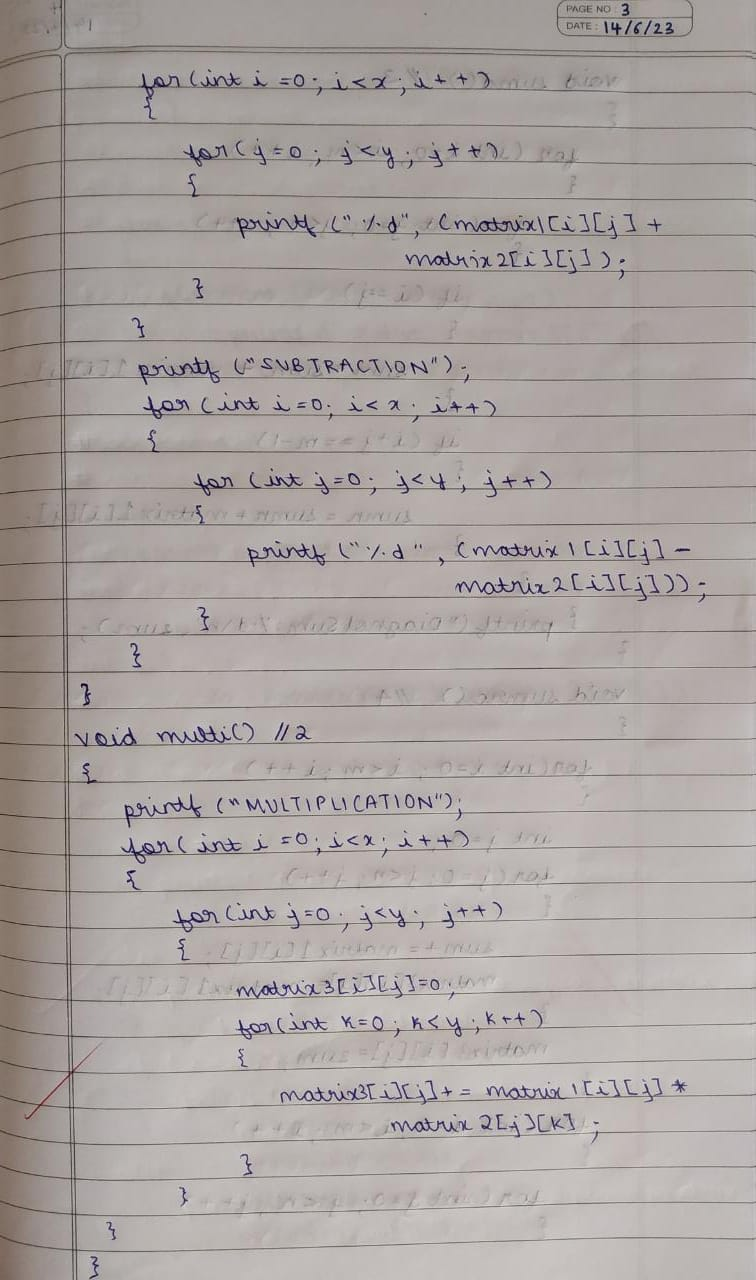 PAGE NO : 3
DATE : 14/6/23
for (int i =0; i<x; i++)
{
for (j=0; j<y; j++)
{
printf ("%d", (matrix1[i][j] +
matrix2[i][j]);
}
}
printf ("SUBTRACTION");
for (int i=0; i<x; i++)
{
for (int j=0; j<y; j++)
{
printf ("%d", (matrix1[i][j] -
matrix2[i][j]));
}
}
}
void multi() //2
{
printf ("MULTIPLICATION");
for (int i =0; i<x; i++)
{
for (int j=0; j<y; j++)
{
matrix3[i][j]=0;
for (int k=0; k<y; k++)
{
matrix3[i][j]+ = matrix1[i][j] *
matrix2[j][k];
}
}
}
}